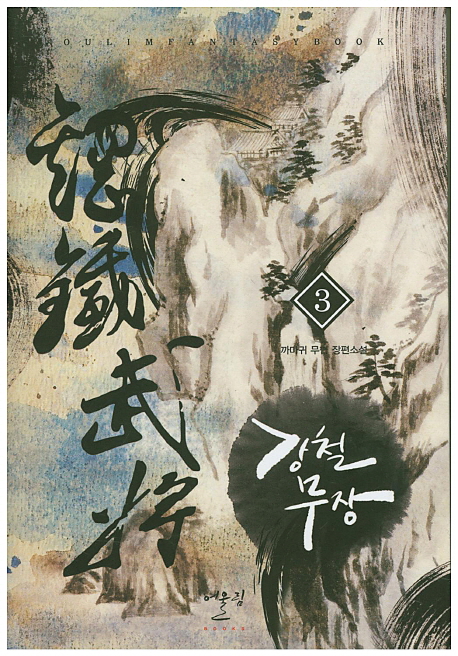 OULIMFANTASYBOOK
鐵武將
3
까마귀 무협 장편소설
강철
무장
어울림
BOOKS